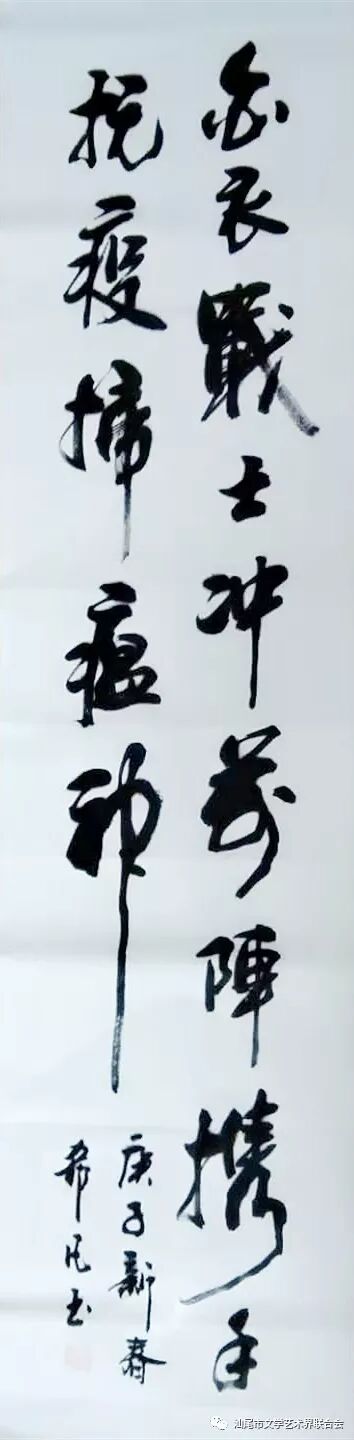 白衣戰士冲前陣携手
抗疫掃瘟神
庚子新春
希凡书
汕尾市文学艺术界联合会